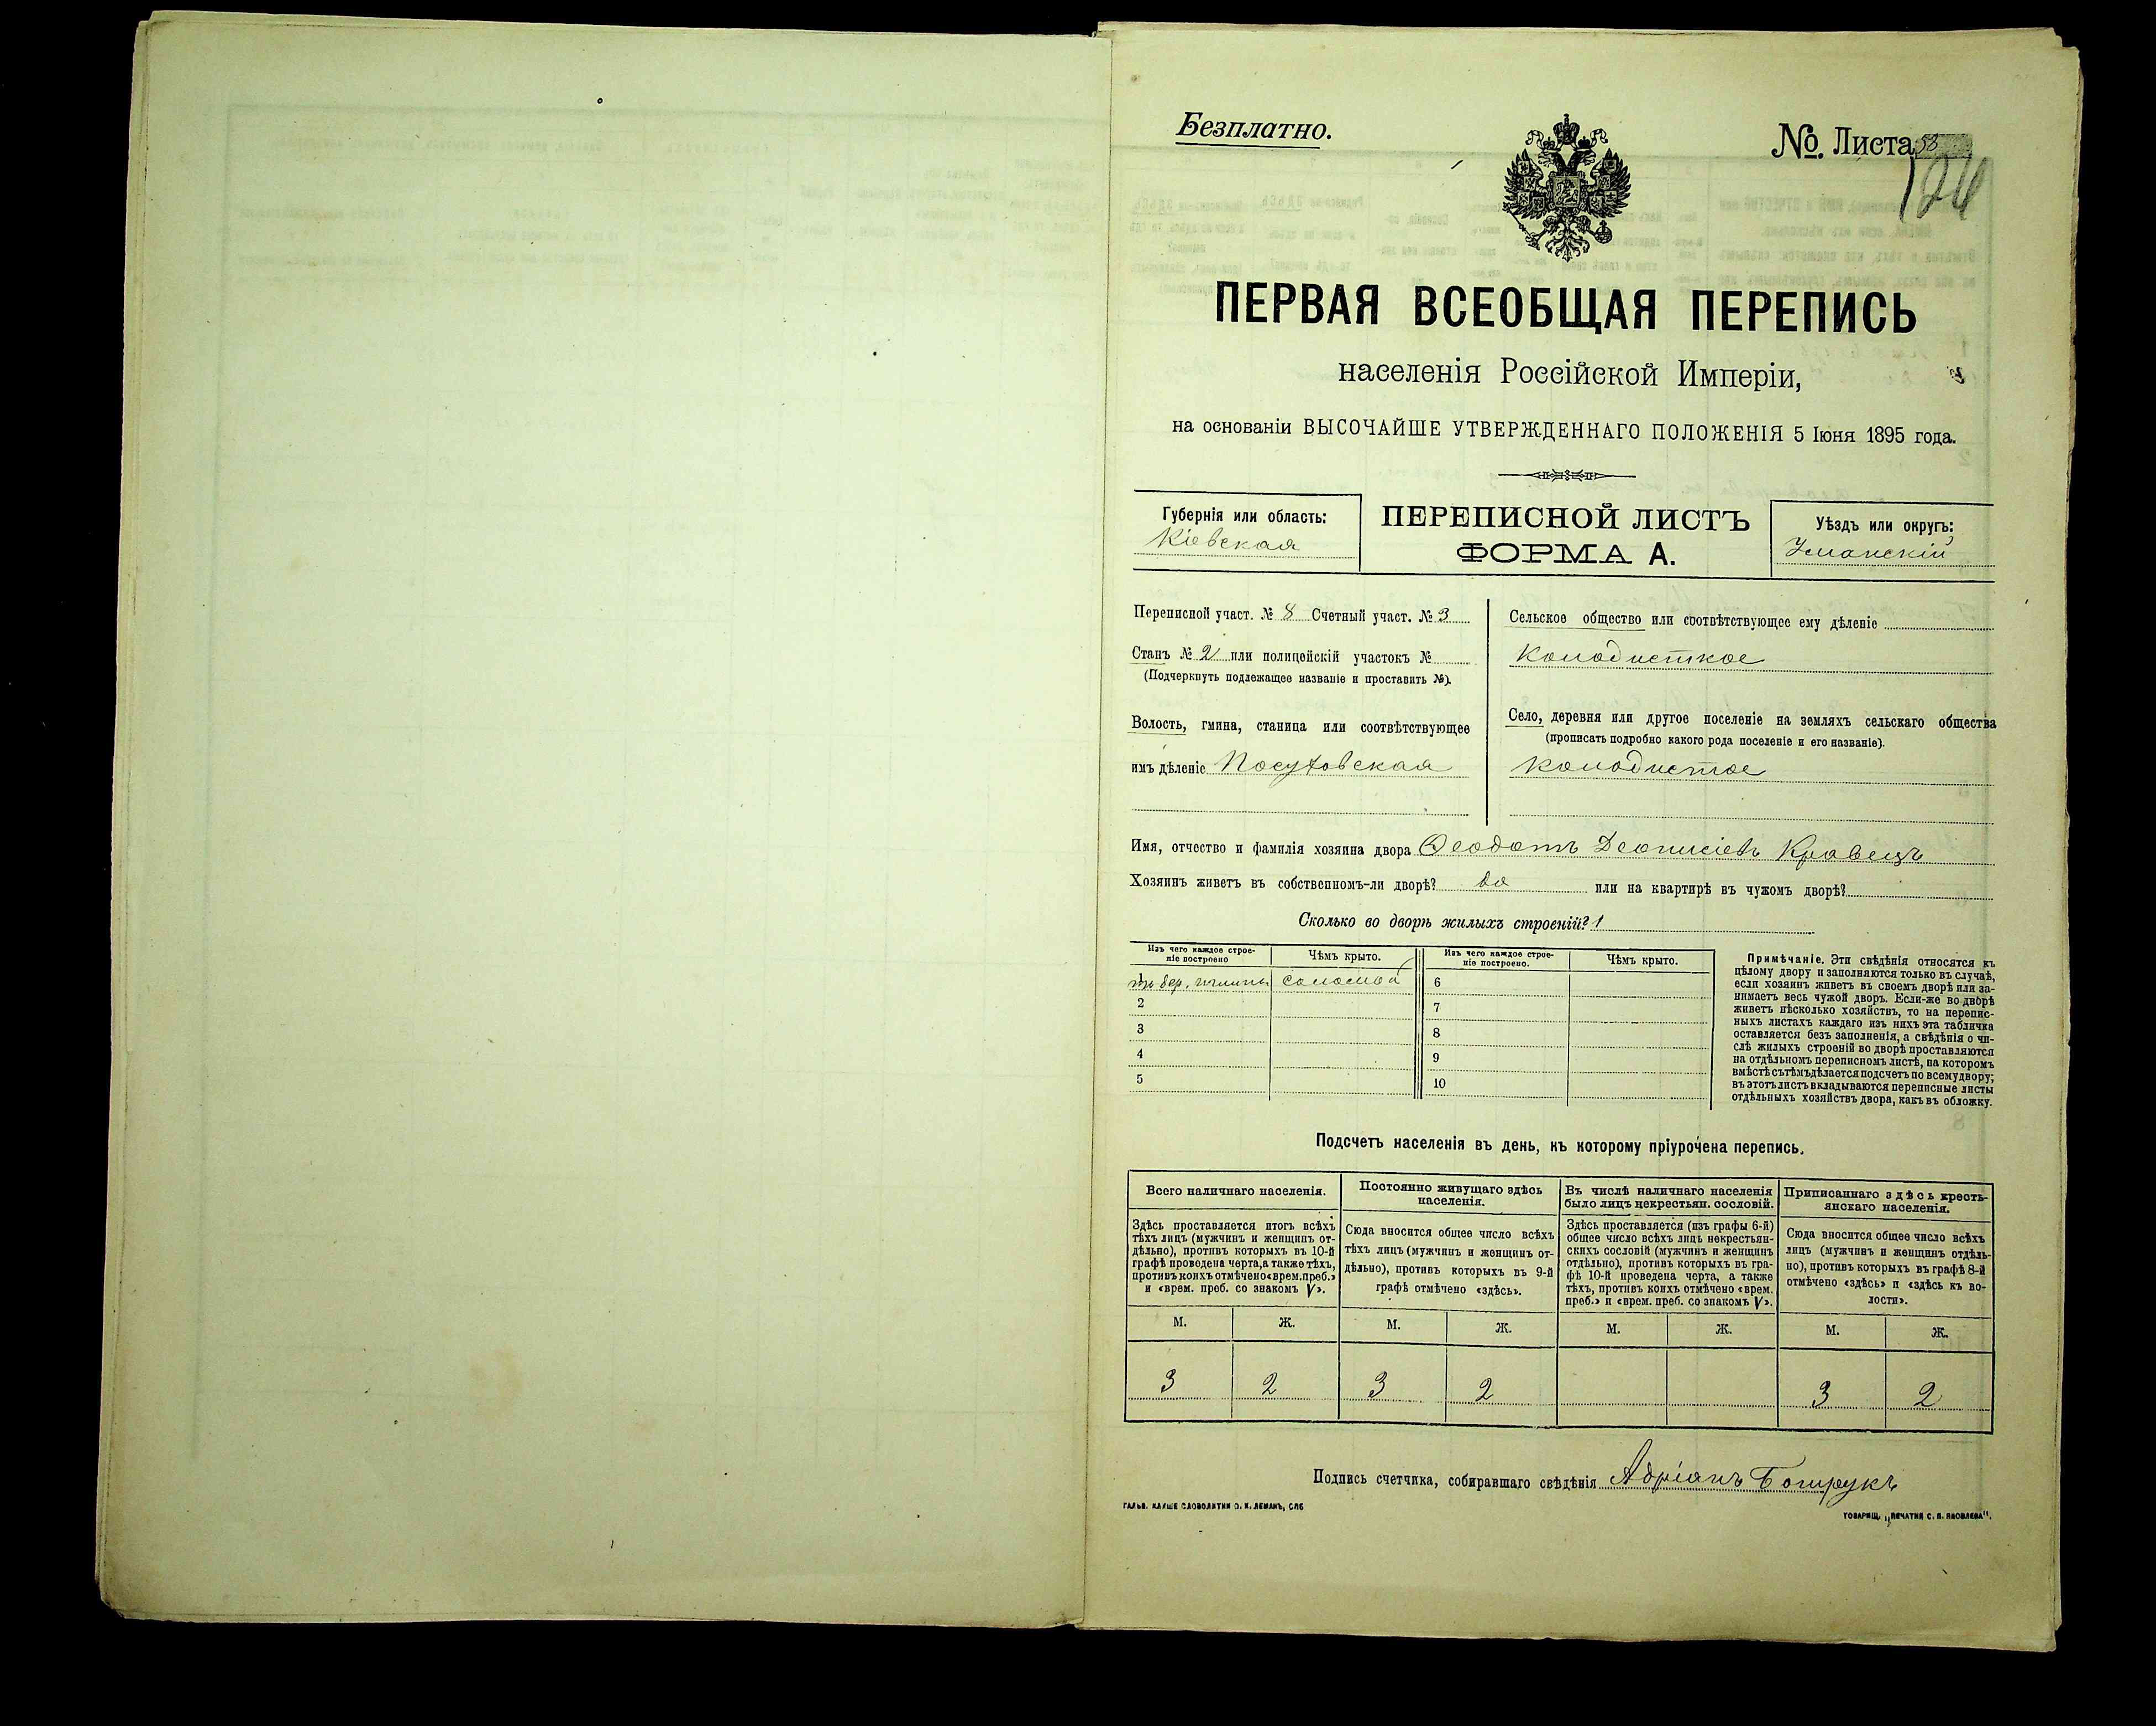 Безплатно.
№. Листа 58
124
ПЕРВАЯ ВСЕОБЩАЯ ПЕРЕПИСЬ
населенія Россійской Имперіи,
на основаніи ВЫСОЧАЙШЕ УТВЕРЖДЕННАГО ПОЛОЖЕНІЯ 5 Іюня 1895 года.
Губернія или область:
Кіевская
ПЕРЕПИСНОЙ ЛИСТЪ
ФОРМА А.
Уѣздъ или округъ:
Уманскій
Переписной участ. № 8 Счетный участ. № 3
Станъ № 2 или полицейскій участокъ №
(Подчеркнуть подлежащее названіе и проставить №).
Волость, гмина, станица или соотвѣтствующее
имъ дѣленіе Посуховская
Сельское общество или соотвѣтствующее ему дѣленіе
Колодисткое
Село, деревня или другое поселеніе на земляхъ сельскаго общества
(прописать подробно какого рода поселеніе и его названіе).
Колодистое
Имя, отчество и фамилія хозяина двора Ѳеодотъ Деонисіевъ Кравецъ
Хозяинъ живетъ въ собственномъ-ли дворѣ? да или на квартирѣ въ чужомъ дворѣ?
Сколько во дворѣ жилыхъ строеній? 1
Изъ чего каждое строе-
ніе построено
Чѣмъ крыто.
Изъ чего каждое строе-
ніе построено.
Чѣмъ крыто.
дер. глины соломой 6
2 7
3 8
4 9
5 10
Примѣчаніе. Эти свѣдѣнія относятся къ
цѣлому двору и заполняются только въ случаѣ,
если хозяинъ живетъ въ своемъ дворѣ или за-
нимаетъ весь чужой дворъ. Если-же во дворѣ
живетъ нѣсколько хозяйствъ, то на перепис-
ныхъ листахъ каждаго изъ нихъ эта табличка
оставляется безъ заполненія, а свѣдѣнія о чи-
слѣ жилыхъ строеній во дворѣ проставляются
на отдѣльномъ переписномъ листѣ, на которомъ
вмѣстѣ съ тѣмъ дѣлается подсчетъ по всему двору;
въ этотъ листъ вкладываются переписные листы
отдѣльныхъ хозяйствъ двора, какъ въ обложку.
Подсчетъ населенія въ день, къ которому пріурочена перепись.
Всего наличнаго населенія.
Здѣсь проставляется итогъ всѣхъ
тѣхъ лицъ (мужчинъ и женщинъ от-
дѣльно), противъ которыхъ въ 10-й
графѣ проведена черта, а также тѣхъ,
противъ коихъ отмѣчено «врем. преб.»
и «врем. преб. со знакомъ V».
Постоянно живущаго здѣсь
населенія.
Сюда вносится общее число всѣхъ
тѣхъ лицъ (мужчинъ и женщинъ от-
дѣльно), противъ которыхъ въ 9-й
графѣ отмѣчено «здѣсь».
Въ числѣ наличнаго населенія
было лицъ некрестьян. сословій.
Здѣсь проставляется (изъ графы 6-й)
общее число всѣхъ лицъ некрестьян-
скихъ сословій (мужчинъ и женщинъ
отдѣльно), противъ которыхъ въ гра-
фѣ 10-й проведена черта, а также
тѣхъ, противъ коихъ отмѣчено «врем.
преб.» и «врем. преб. со знакомъ V».
Приписаннаго здѣсь кресть-
янскаго населенія.
Сюда вносится общее число всѣхъ
лицъ (мужчинъ и женщинъ отдѣль-
но), противъ которыхъ въ графѣ 8-й
отмѣчено «здѣсь» и «здѣсь къ во-
лости».
М. Ж. М. Ж. М. Ж. М. Ж.
3 2 3 2 3 2
Подпись счетчика, собиравшаго свѣдѣнія Адріанъ
ГАЛЬВ. КЛИШЕ СЛОВОЛИТНИ О. И. ЛЕМАНЪ, СПБ
ТОВАРИЩ. „ПЕЧАТНЯ С. П. ЯКОВЛЕВА".